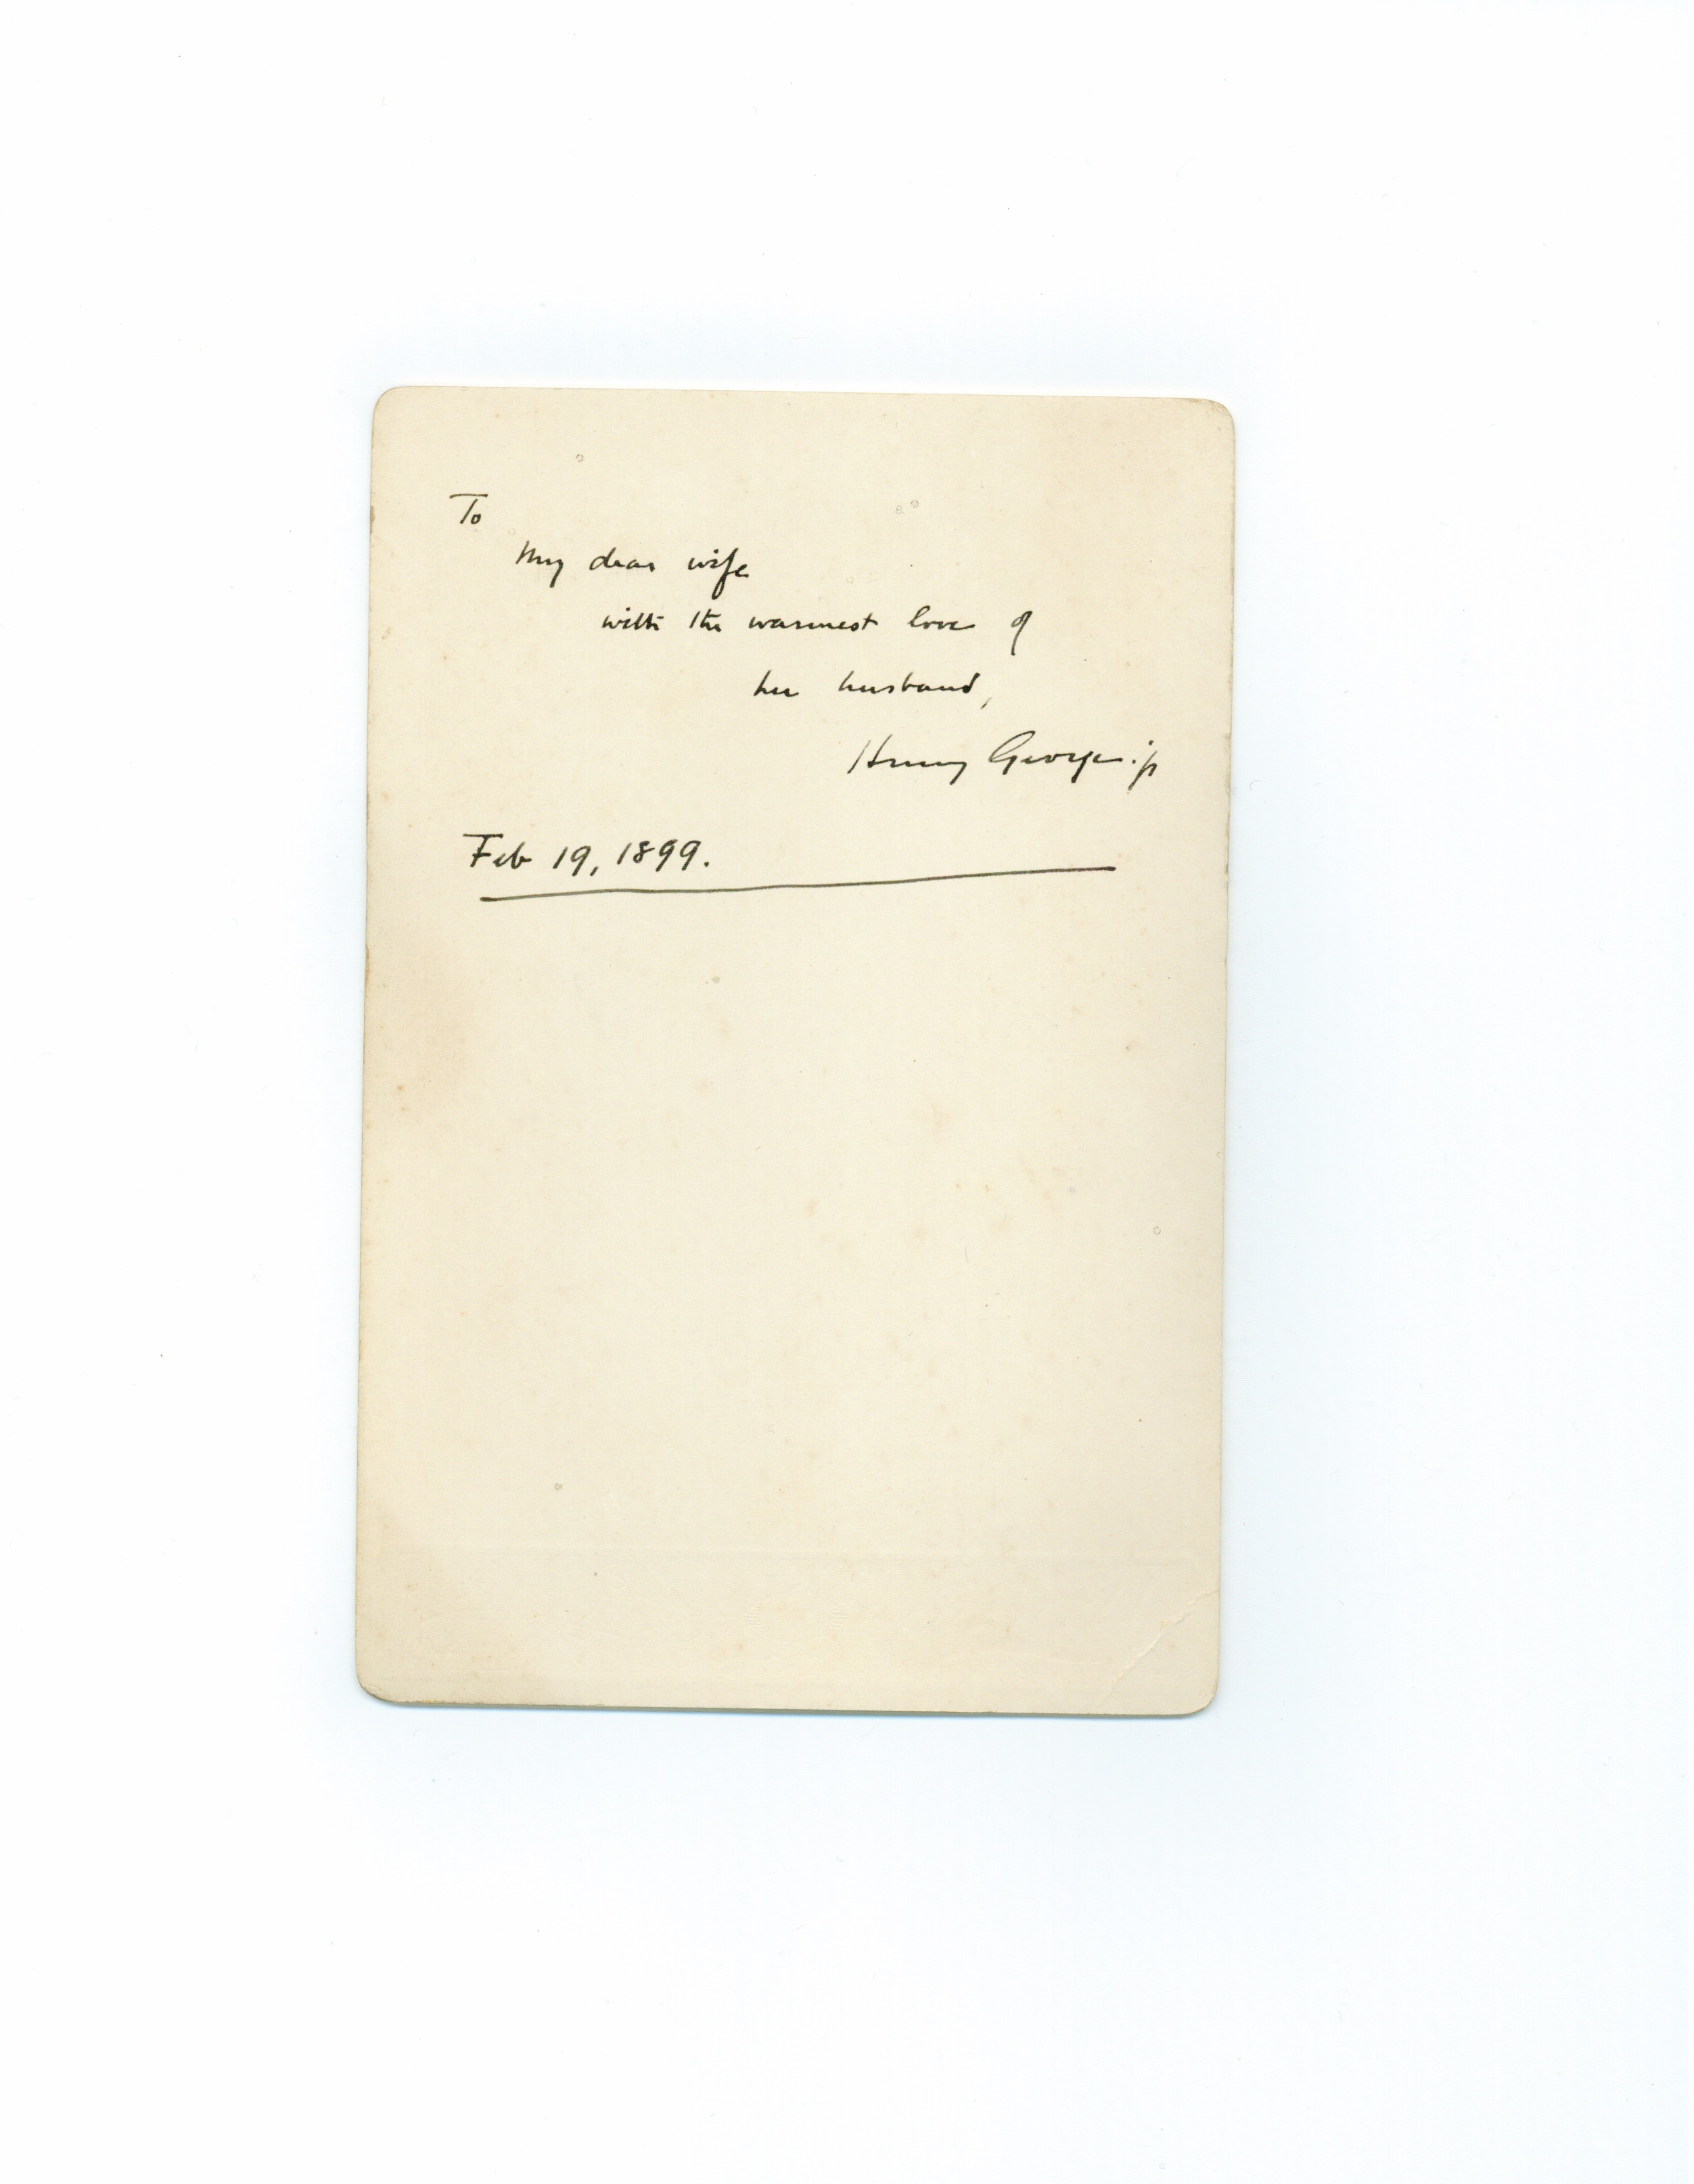 To
My dear wife
with the warmest love of
her husband,
Henry George jr
Feb 19, 1899.